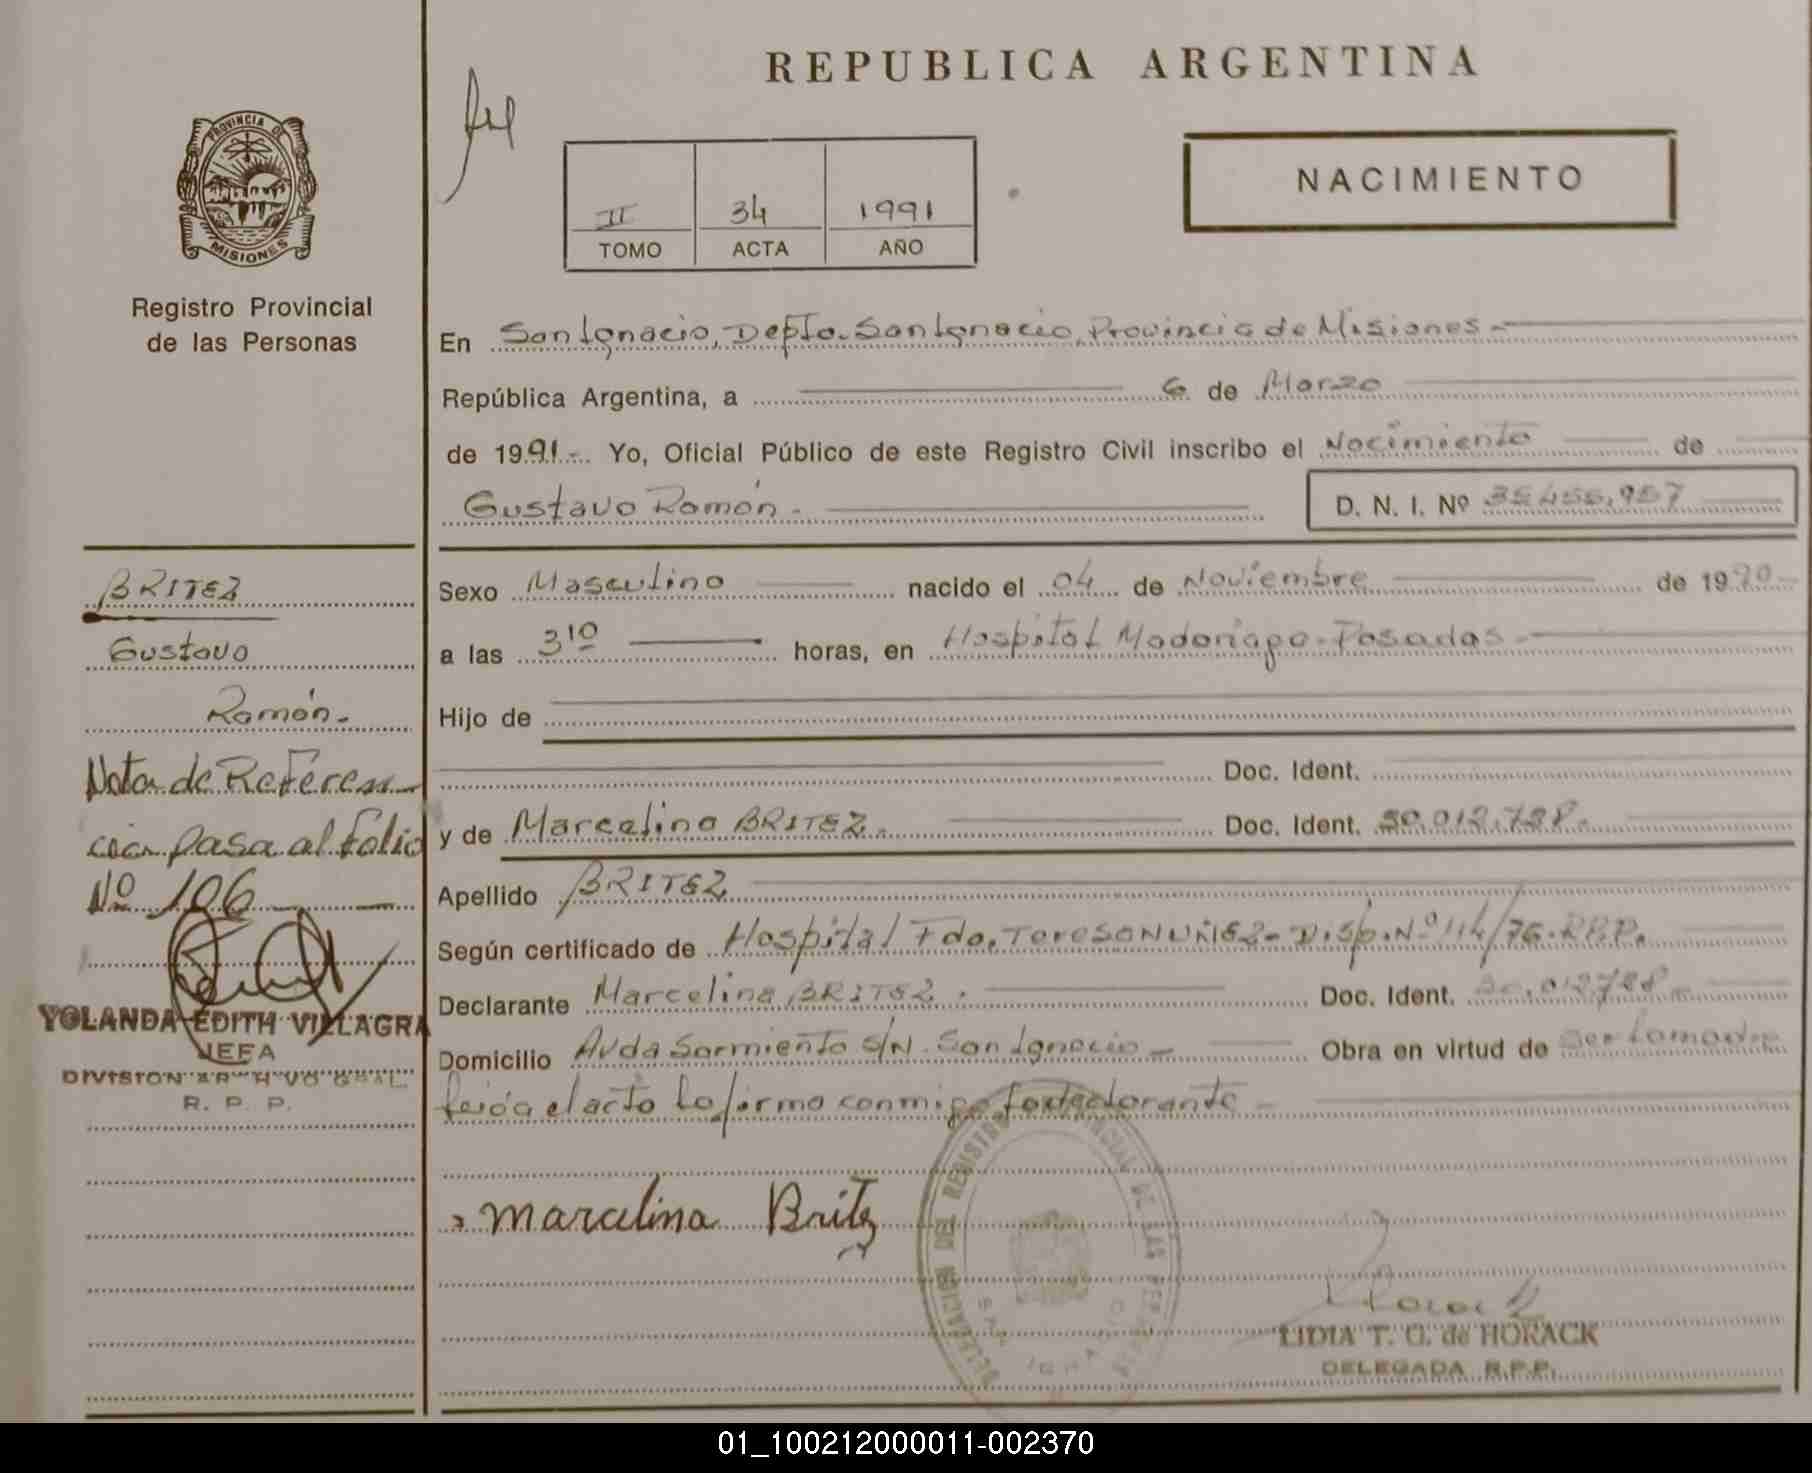 REPUBLICA ARGENTINA
PROVINCIA DE
MISIONES
Registro Provincial
de las Personas
II 34 1991
TOMO ACTA AÑO
NACIMIENTO
En San Ignacio, Depto. San Ignacio, Provincia de Misiones -
República Argentina, a 6 de Marzo
de 1991.- Yo, Oficial Público de este Registro Civil inscribo el Nacimiento de
Gustavo Ramón - D. N. I. Nº 35.455.957
BRITEZ
Gustavo
Ramón.-
Nota de Referen
cia pasa al Folio
Nº 106
YOLANDA EDITH VILLAGRA
JEFA
DIVISION ARCHIVO GRAL.
R. P. P.
Sexo Masculino nacido el 04 de Noviembre de 1990
a las 3 10 horas, en Hospital Madariaga - Posadas -
Hijo de
Doc. Ident.
y de Marcelina BRITEZ.- Doc. Ident. 30.012.728.-
Apellido BRITEZ
Según certificado de Hospital Fdo. Teresa NUÑEZ - Disp. Nº 114/76. R.P.P.
Declarante Marcelina BRITEZ. Doc. Ident. 30.012.728
Domicilio Avda Sarmiento S/N. San Ignacio - Obra en virtud de ser la madre
leída el acto la firma conmigo la declarante -
marcelina Britez
DELEGACION DEL REGISTRO PROVINCIAL DE LAS PERSONAS
SAN IGNACIO
LIDIA T. G. de HORACK
DELEGADA R.P.P.
01_100212000011-002370